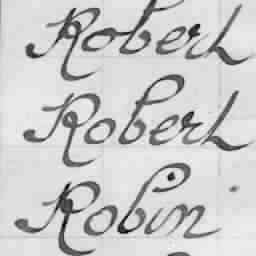 Robert
Robert
Robin